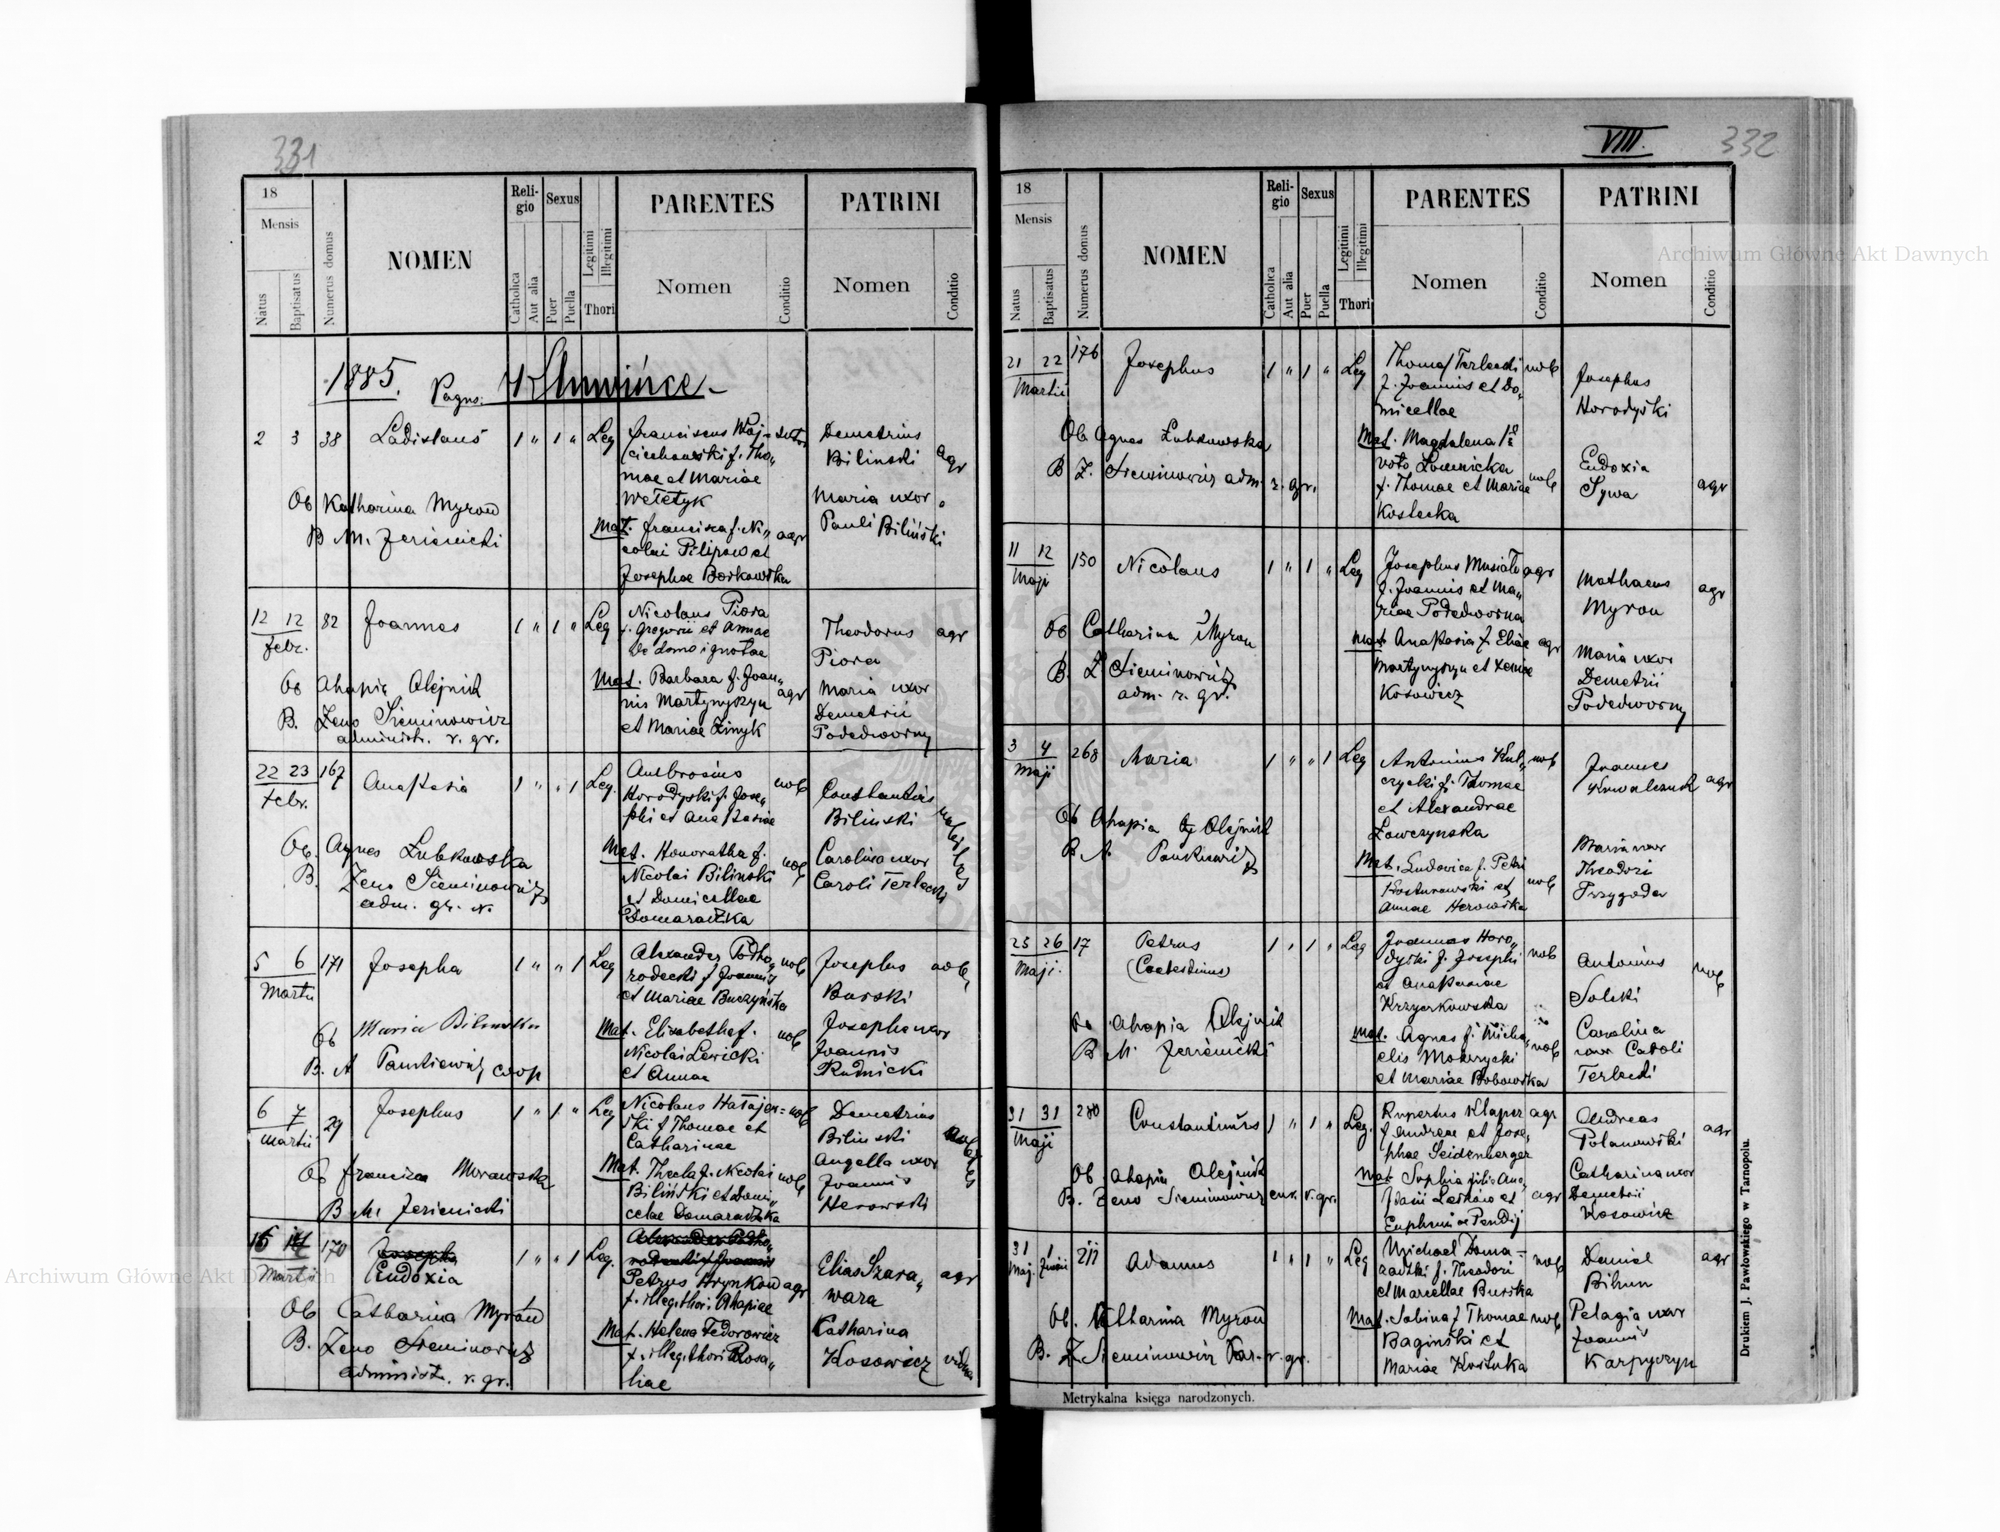 331
18
Mensis
Natus
Baptisatus
Numerus domus
NOMEN
Religio
Catholica
Aut alia
Sexus
Puer
Puella
Legitimi
Illegitimi
Thori
PARENTES
Nomen
Conditio
PATRINI
Nomen
Conditio
1885. Pagus.
2 3 38 Ladislaus 1 " 1 " Leg
Ob Katharina Myron
B M. Zerienicki
Franciscus Woj=
ciechowski f. Tho„
mae et Mariae
Wełełyk
Mat. Francisca f. Ni„ agr
colai Pilipow et
Josephae Borkowska
Demetrius agr
Bilinski
Maria uxor
Pauli Biliński
12 12 82 Joannes 1 " 1 " Leg
Febr.
Ob Ahapia Olejnik
B. Zeno Sieminowicz
administr. r. gr.
Nicolaus Piora
f. Gregorii et Annae
de domo ignotae
Mat. Barbara f. Joan„
nis Martynyszyn agr
et Mariae Zinyk
Theodorus agr
Piora
Maria uxor
Demetrii
Podedworny
22 23 167 Anastasia 1 " " 1 Leg.
Febr.
Ob. Agnes Lubkowska
B. Zeno Sieminowicz
adm. gr. r.
Ambrosius nob
Horodyski f. Jose„
phi et Anastasiae
Mat. Honoratha f.
Nicolai Bilinski nob
et Domicellae
Domaradzka
Constantius nobiles
Bilinski
Carolina uxor
Caroli Terlecki
5 6 171 Josepha 1 " " 1 Leg
Martii
Ob Maria Bilinska
B. A Pankiewicz coop
Alexander Podho„ nob
rodecki f Joannis
et Mariae Buczyńska
Mat. Elisabetha f. nob
Nicolai Lewicki
et Annae
Josephus nob
Burski
Josepha uxor
Joannis
Rudnicki
6 7 29 Josephus 1 " 1 " Leg
Martii
Ob Francisca Morawska
B M. Zerienicki
Nicolaus Hałajew= nob
ski f Thomae et
Catharinae
Mat. Thecla f. Nicolai nob
Biliński et Domi„
celae Domaradzka
Demetrius nobiles
Bilinski
Angella uxor
Joannis
Herowski
170 Josepha 1 " " 1 Leg.
Martii Eudoxia
Ob Catharina Myron
B. Zeno Sieminowicz
administ. r. gr.
Alexander Podho„
rodecki f Joannis
Petrus Hrynkow agr
f. illeg. thori Ahapiae
Mat. Helena Fedorowicz
f. illeg. thori Rosa„
liae
Elias Szara„ agr
wara
Katharina
Kosowicz vidua
VIII. 332
18
Mensis
Natus
Baptisatus
Numerus domus
NOMEN
Religio
Catholica
Aut alia
Sexus
Puer
Puella
Legitimi
Illegitimi
Thori
PARENTES
Nomen
Conditio
PATRINI
Nomen
Conditio
21 22 176 Josephus 1 " 1 " Leg
Martii
Ob Agnes Lubkowska
B Z. Sieminowicz adm. r. gr.
Thomas Terlecki nob
f. Joannis et Do„
micellae
Mat. Magdalena
voto Lownicka
f. Thomae et Mariae nob
Kostecka
Josephus
Horodyski
Eudoxia
Sywa agr
11 12 150 Nicolaus 1 " 1 " Leg
Maji
Ob Catharina Myron
B. Z Sieminowicz
adm. r. gr.
Josephus Musiało agr
f. Joannis et Ma„
riae Podedworna
Mat. Anastasia f. Eliae agr
Martynyszyn et Xeniae
Kosowicz
Mathaeus agr
Myron
Maria uxor
Demetrii
Podedworny
3 4 268 Maria 1 " " 1 Leg
Maji
Ob Ahapia Olejnik
B. A. Pankiewicz
Antonius Kul„ nob
czycki f. Thomae
et Alexandrae
Łowczynska
Mat. Ludovica f. Petri
et nob
Annae Herowska
Joannes
Kowalczuk agr
Maria uxor
Theodori
Przygoda
25 26 17 Petrus 1 " 1 " Leg
Maji. (Coelestinus)
Ob Ahapia Olejnik
B M. Zerienicki
Joannes Horo„ nob
dyski f. Josephi
et Anastasiae
Krzyczkowska
Mat. Agnes f. Micha„ nob
elis Mokrzycki
et Mariae Bobowska
Antonius nob
Solski
Carolina
uxor Caroli
Terlecki
31 31 280 Constantinus 1 " 1 " Leg.
Maji
Ob. Ahapia Olejnik
B. Zeno Sieminowicz r. gr.
Rupertus Klaper agr
f Andreae et Jose„
phae Seidenberger
Mat Sophia filia Ana„
et agr
Euphemiae Pendij
Andreas agr
Polanowski
Catharina uxor
Demetrii
Kosowicz
31 1 277 Adamus 1 " 1 " Leg
Maj. Junii
Ob. Catharina Myron
B. Z Sieminowicz r. gr.
Michael Doma= nob
radzki f. Theodori
et Marcellae Burska
Mat. Sabina f Thomae nob
Bagiński et
Mariae
Daniel agr
Bihun
Pelagia uxor
Joannis
Karpyczyn
Metrykalna księga narodzonych.
Drukiem J. Pawłowskiego w Tarnopolu.
Archiwum Główne Akt Dawnych
Archiwum Główne Akt Dawnych